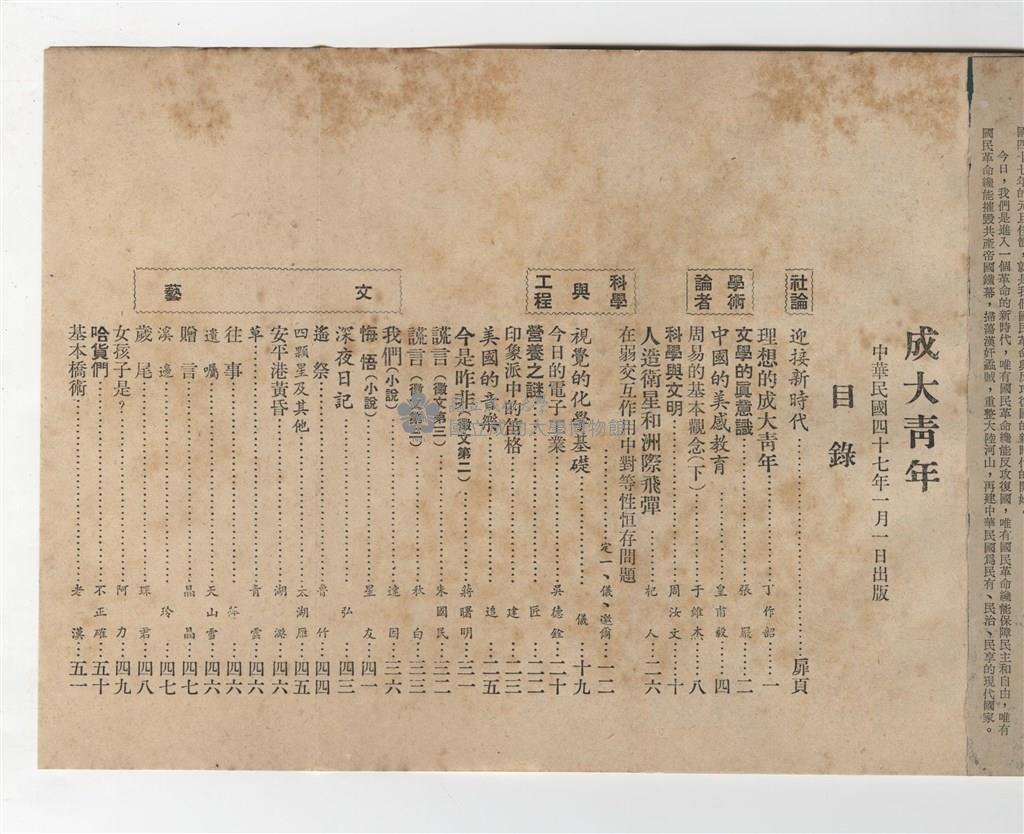 今日，我們是進入一個革命的新時代，唯有國民革命纔能反攻復國，唯有國民革命纔能保障民主和自由，唯有
國民革命纔能摧毀共產帝國鐵幕，掃蕩漢奸蟊賊，重整大陸河山，再建中華民國爲民有、民治、民享的現代國家。
成大靑年
中華民國四十七年一月一日出版
目錄
社論
迎接新時代……扉頁
學術論著
理想的成大靑年……丁作韶……一
文學的眞意識……張嚴……二
中國的美感教育……皇甫毅……四
周易的基本觀念(下)……于維杰……八
科學與文明……周汝文……十
科學與工程
人造衛星和洲際飛彈……杞人……二六
在弱交互作用中對等性恒存問題
……定一、儀、邀爾……一二
視覺的化學基礎……儀……十九
今日的電子工業……吳德銓……二十
營養之謎……匠……二二
文藝
印象派中的笛格……建……二三
美國的音樂……追……二五
今是昨非(徵文第二)……蔣曙明……三一
謊言(徵文第三)……朱國民……三二
謊言(徵文第三)……秋白……三三
我們(小說)……達因……三六
悔悟(小說)……星友……四一
深夜日記……弘……四三
遙祭……魯竹……四四
四顆星及其他……太湖雁……四五
安平港黃昏……湖潞……四六
草……靑雲……四六
往事……萍……四六
遺囑……天山雪……四六
贈言……晶晶……四七
溪邊……玲……四七
歲尾……琛君……四八
女孩子是？……阿力……四九
哈貨們……不正確……五十
基本橋術……老漢……五一
國立成功大學博物館